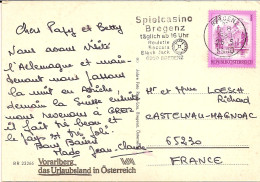 Chers Papy et Betty
Nous avons visité
l'Allemagne et main-
tenant nous passons
la nuit en Autriche
demain la Suisse ensuite
nous rentrons à
il fait très beau et
le pays est très joli
Bons Baisers
Jean Claude
Spielcasino
Bregenz
täglich ab 16 Uhr
Roulette
Baccara
Black Jack
6900 BREGENZ
REPUBLIK ÖSTERREICH
Mr et Mme LOESCH
Richard
CASTELNAU-MAGNOAC
65230
FRANCE
Vorarlberg
das Urlaubsland in Österreich